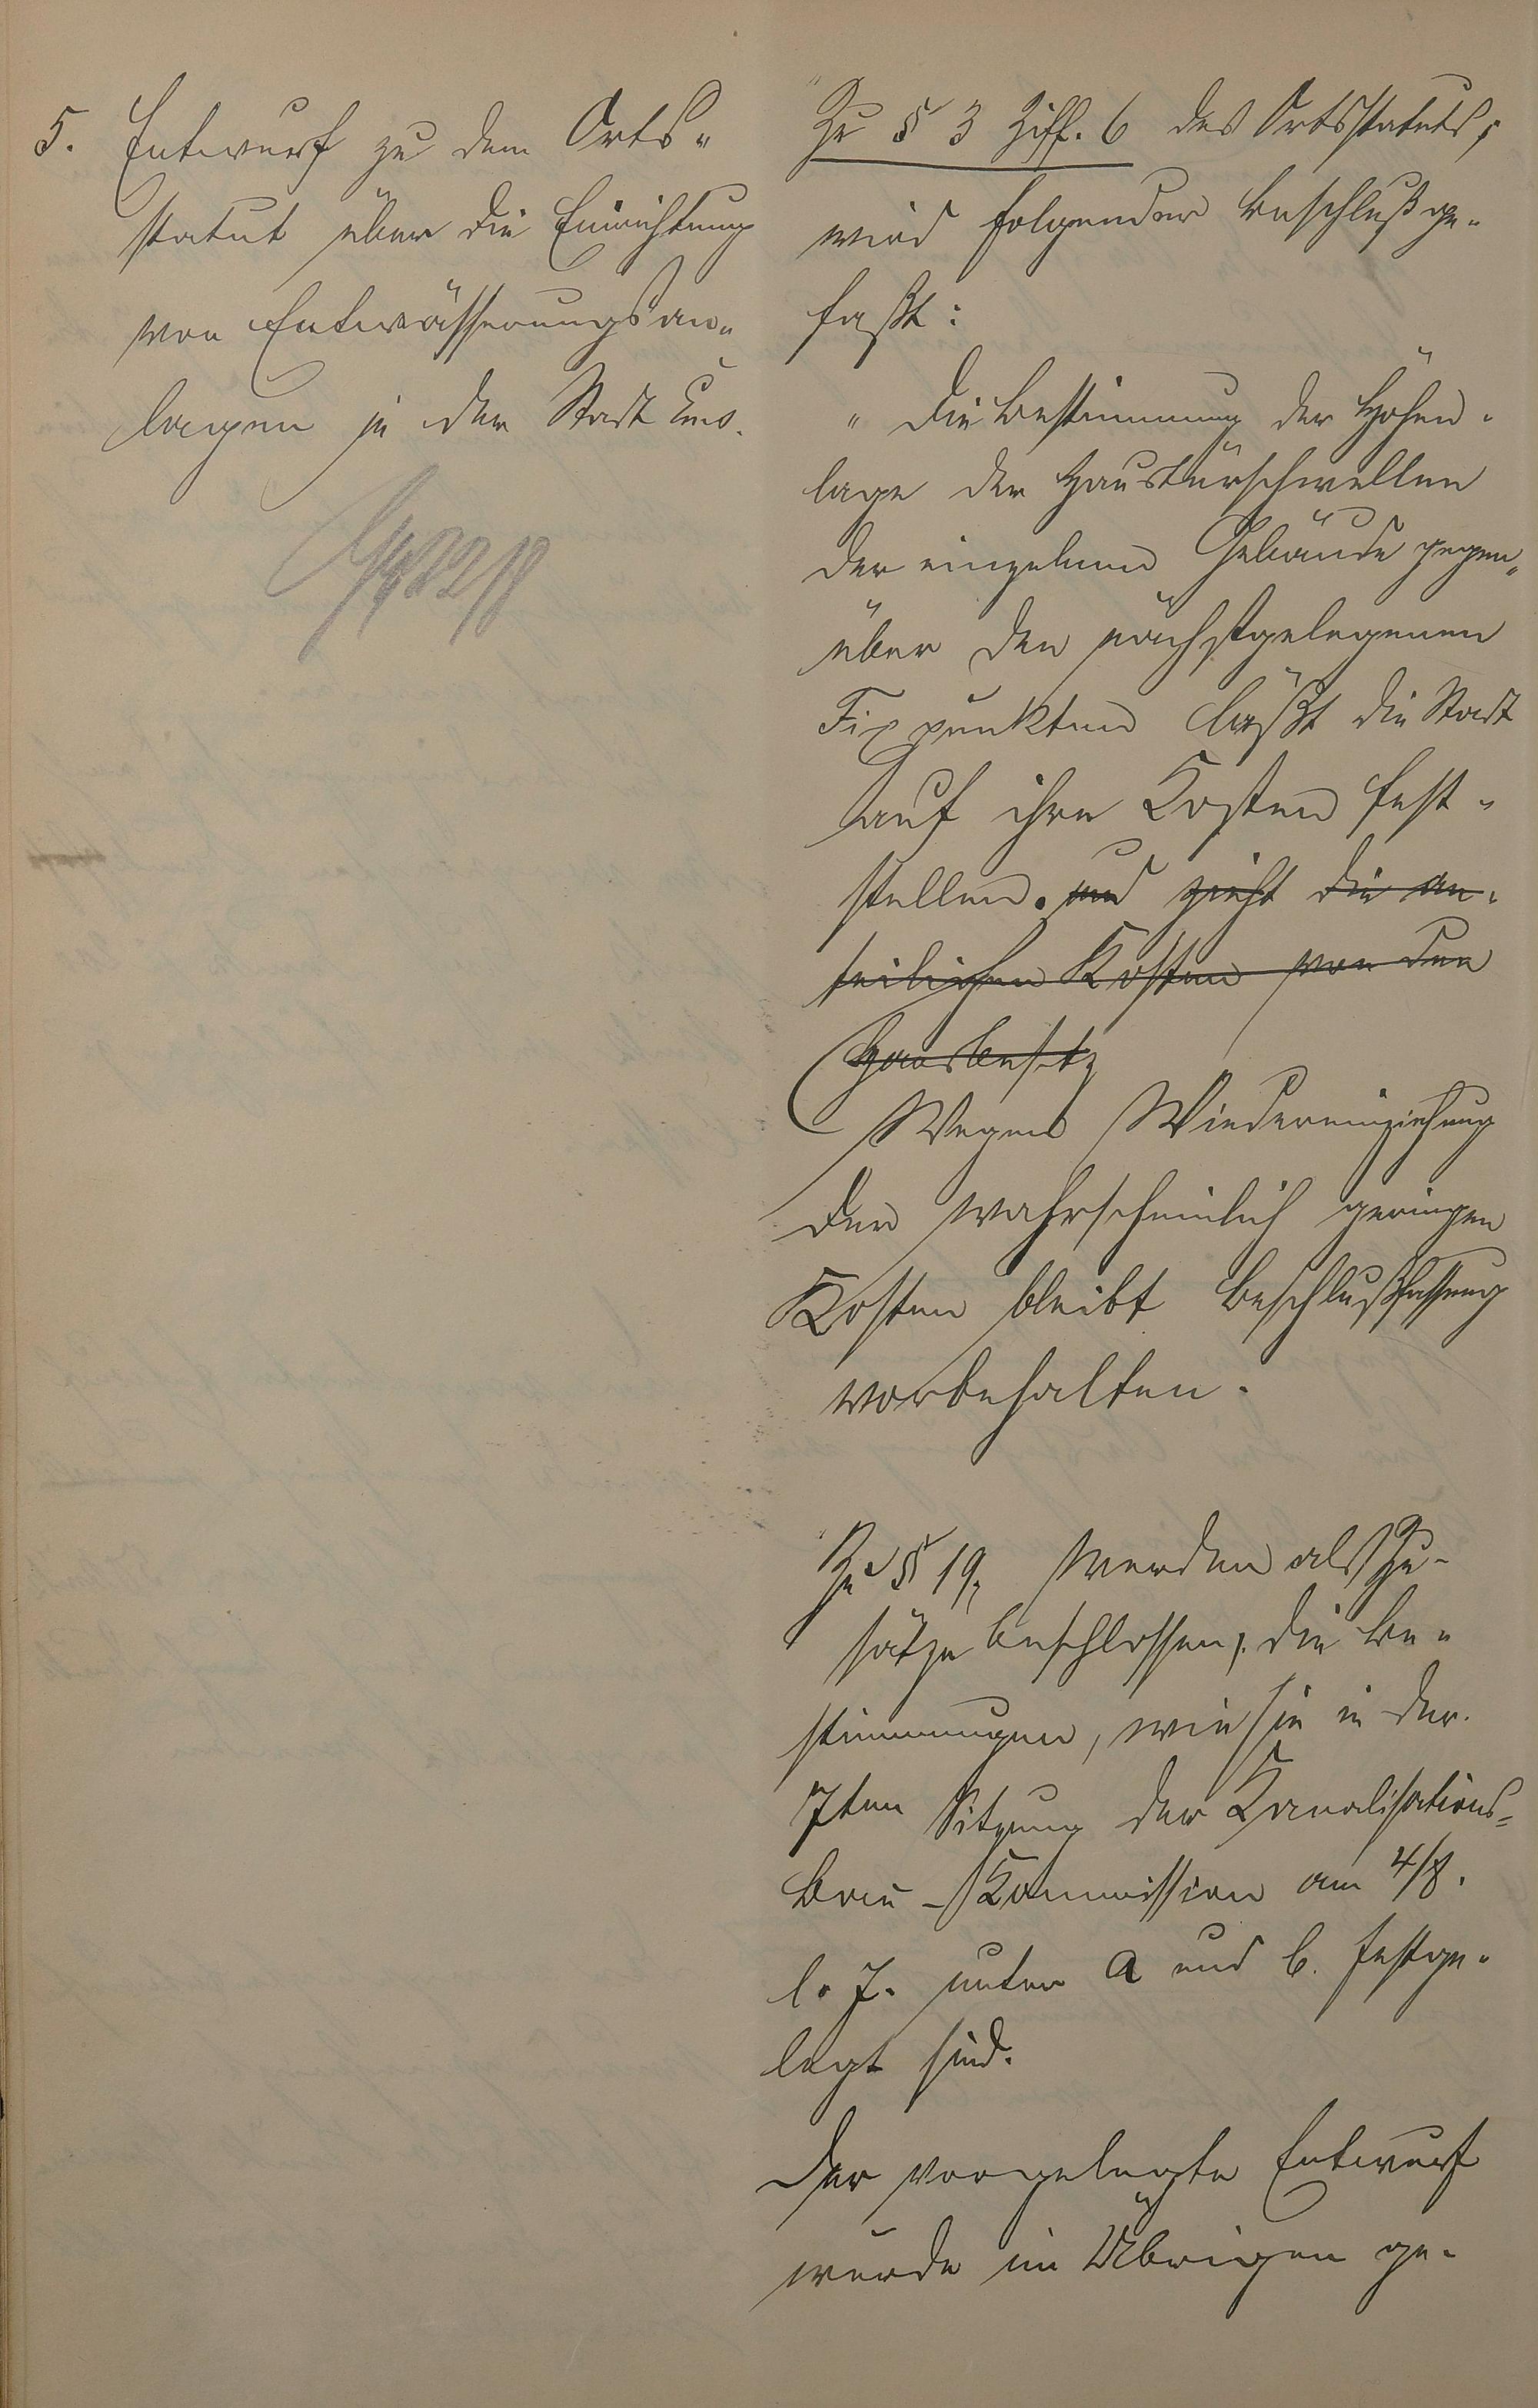 5. Entwurf zu dem Orts-
statut über die Einrichtung
von Entwässerungsan-
lagen in der Stadt Ems.
Zu § 3 Ziff. 6 des Ortsstatuts,
wird folgender Beschluß ge-
faßt:
"Die Bestimmung der Höhen-
lage der Haustürschwellen
der einzelnen Gebäude gegen-
über den nächstgelegenen
Fixpunkten läßt die Stadt
auf ihre Kosten fest-
stellen. und zieht die an-
teiligen Kosten von den
Hausbesitz
Wegen Wiedereinziehung
der wahrscheinlich geringen
Kosten bleibt Beschlußfassung
vorbehalten.
Zu § 19, werden als Zu-
sätze beschlossen, die Be-
stimmungen, wie sie in der
7ten Sitzung der Kanalisations-
bau-Kommission am 4/8.
l. J. unter a und b. festge-
legt sind.
Der vorgelegte Entwurf
wurde im Übrigen ge-